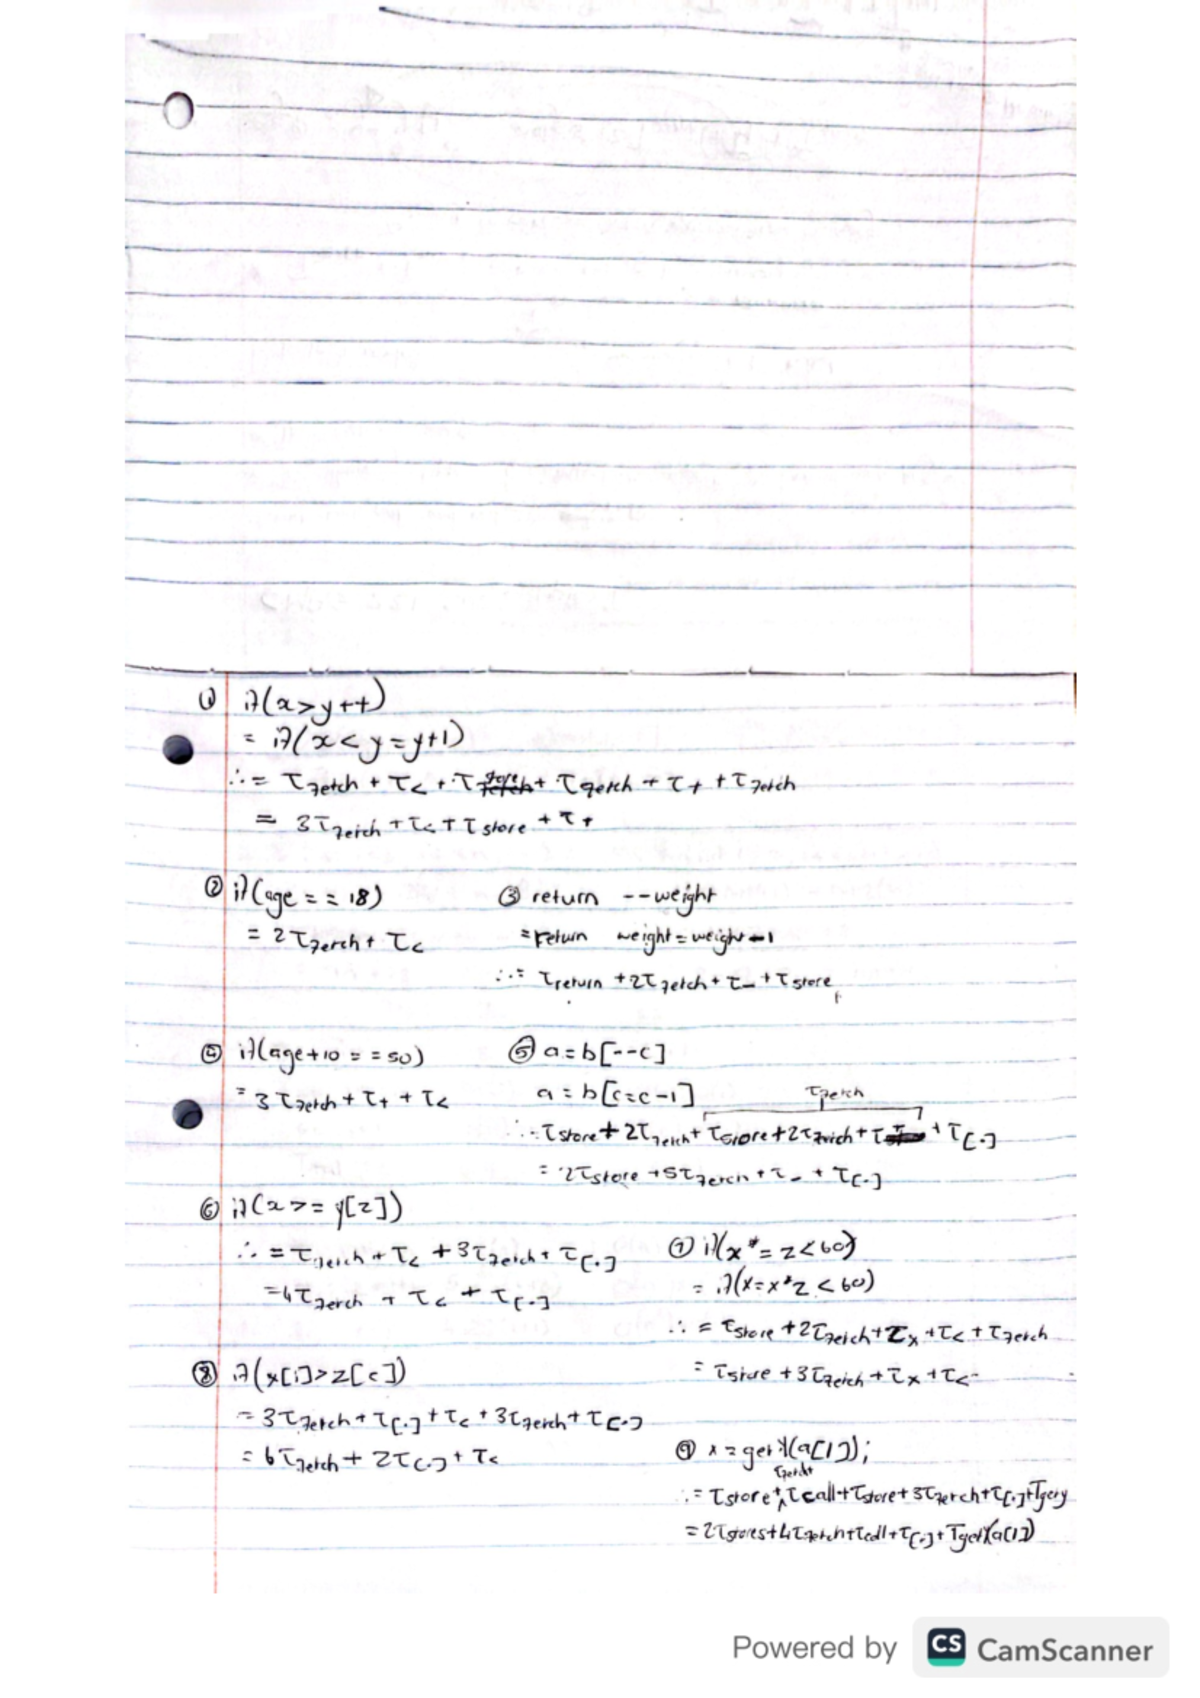 ① if(x>y++)
= if(x<y=y+1)
∴= τfetch + τ< + τstore + τfetch + τ+ + τfetch
= 3τfetch + τ< + τstore + τ+
② if(age == 18)
= 2τfetch + τ<
③ return --weight
=return weight=weight-1
∴= τreturn +2τfetch + τ- + τstore
④ if(age+10 == 50)
= 3τfetch + τ+ + τ<
⑤ a=b[--c]
a=b[c=c-1]
τfetch
∴ τstore + 2τfetch + τstore + 2τfetch + τ- + τ[.]
= 2τstore +5τfetch + τ- + τ[.]
⑥ if(x>=y[z])
∴ = τfetch + τ< + 3τfetch + τ[.]
=4τfetch + τ< + τ[.]
⑦ if(x*=z<60)
= if(x=x*z<60)
∴ = τstore +2τfetch+τx +τ< +τfetch
= τstore +3τfetch+τx +τ<
⑧ if(x[i]>z[c])
= 3τfetch + τ[.] + τ< + 3τfetch + τ[.]
= 6τfetch + 2τ[.] + τ<
⑨ x=getX(a[1]);
τfetch+
∴= τstore+τcall+τstore+3τfetch+τ[.]+
=2τstores+4τfetch+τcall+τ[.]+TgetX(a[1])
Powered by CS CamScanner